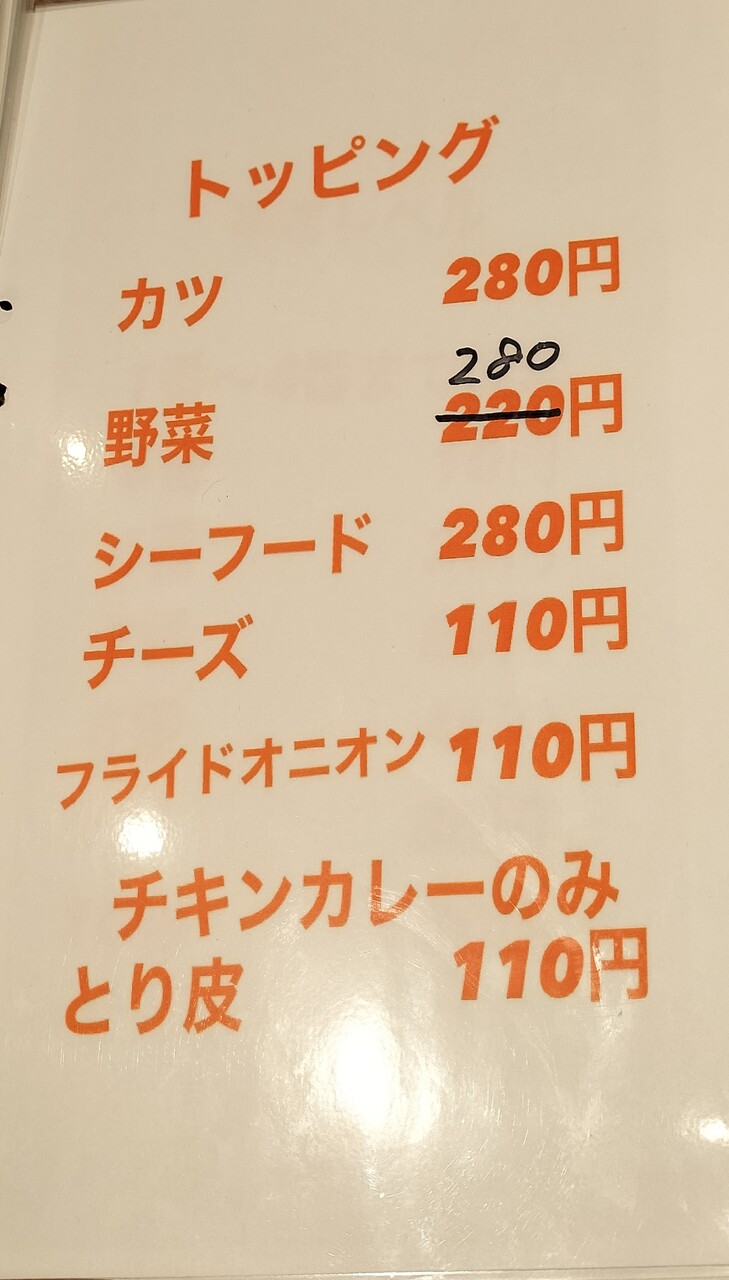 トッピング
カツ 280円
280
野菜 220円
シーフード 280円
チーズ 110円
フライドオニオン 110円
チキンカレーのみ
とり皮 110円